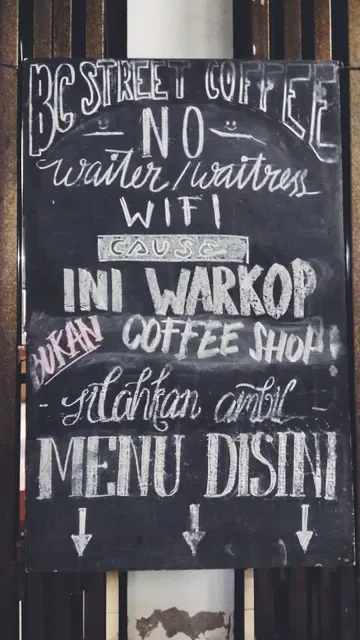 BC STREET COFFEE
NO
waiter/waitress
WIFI
CAUSE
INI WARKOP
BUKAN COFFEE SHOP!
- silahkan ambil -
MENU DISINI